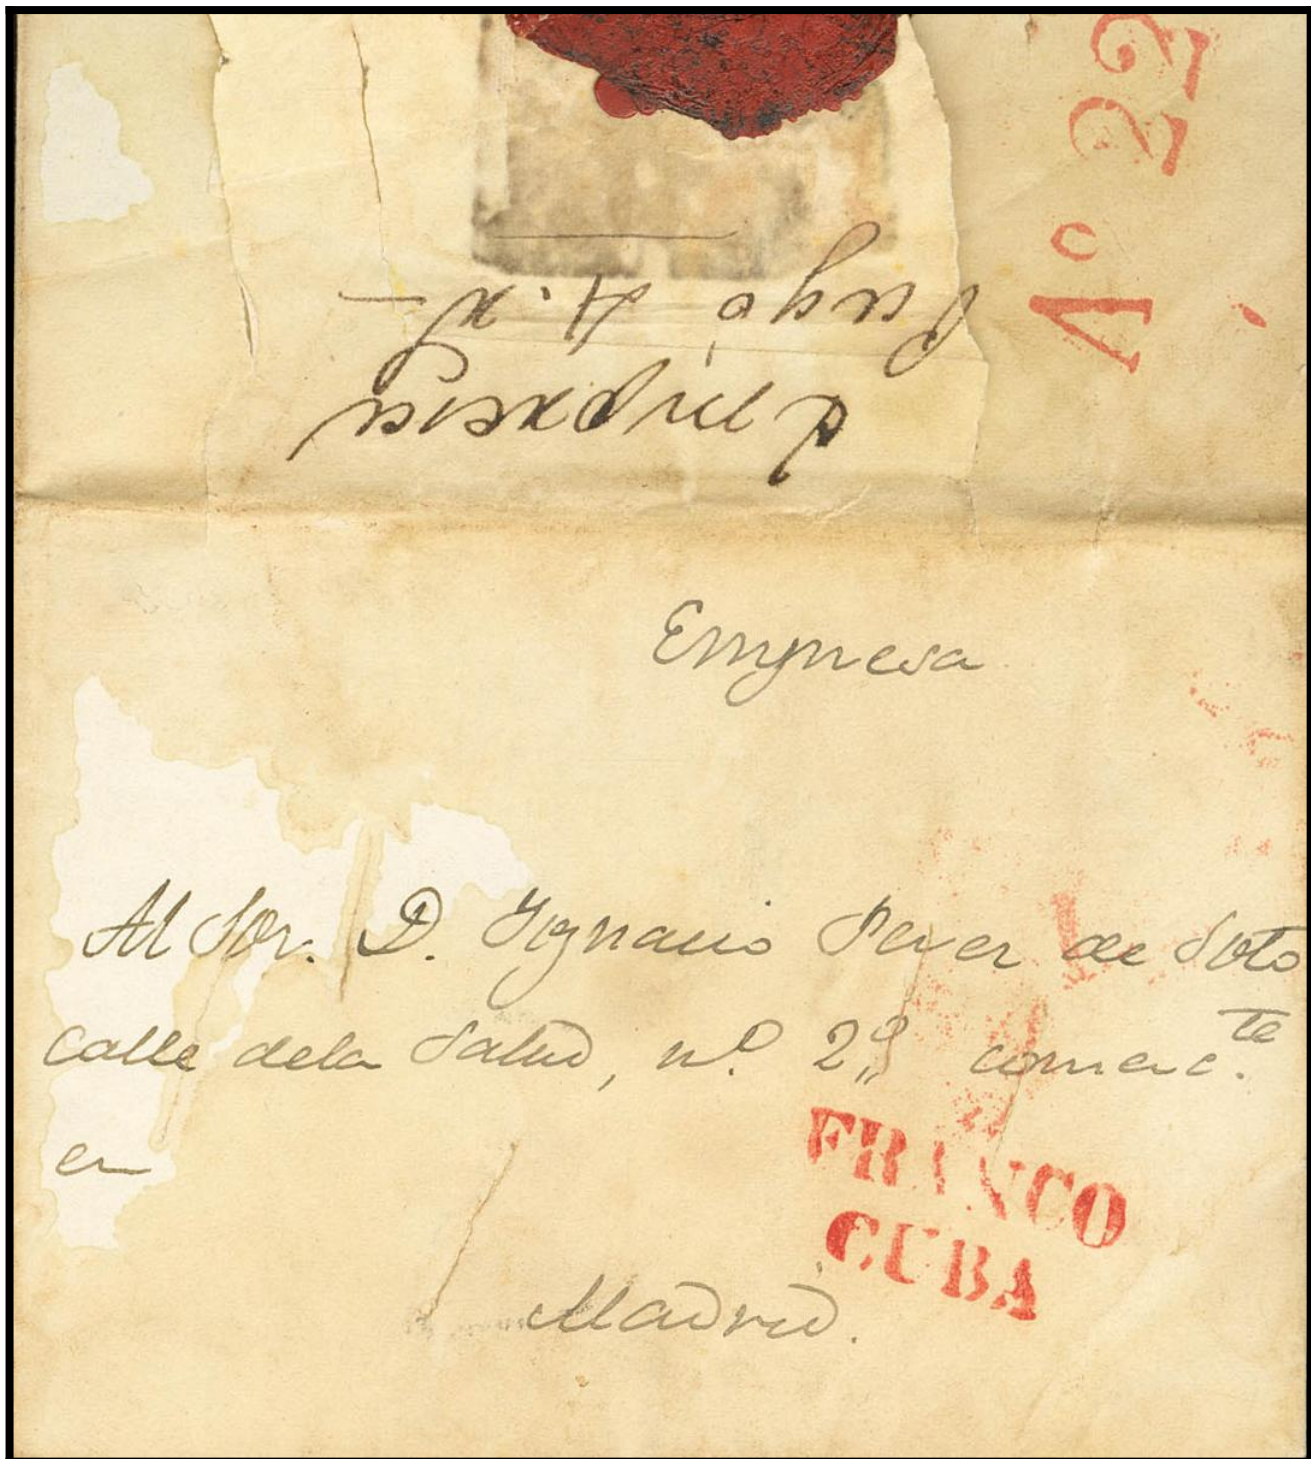 Aº 22
Empresa
Pagó 4. r
Empresa
Al Sor. D. Ygnacio Perez de Soto
calle dela Salud, nº. 2º, comerc.te
en
FRANCO
CUBA
Madrid.